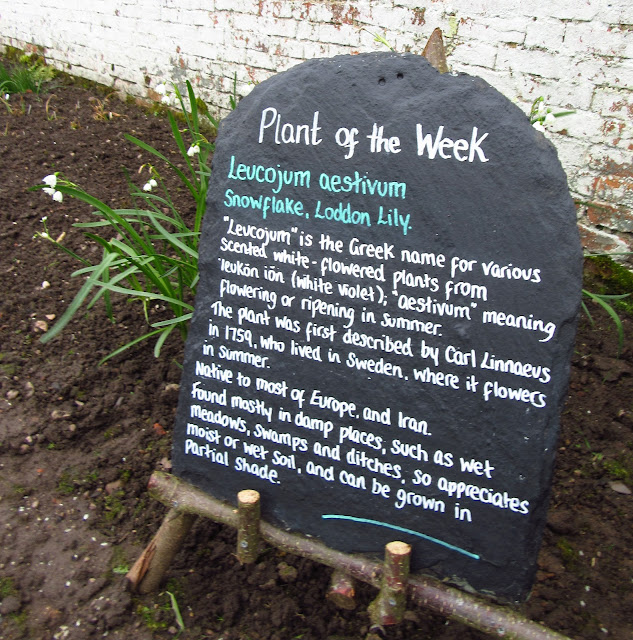 Plant of the Week
Leucojum aestivum
Snowflake, Loddon Lily.
"Leucojum" is the Greek name for various
scented white-flowered plants from
'leukón ión (white violet); "aestivum" meaning
flowering or ripening in summer.
The plant was first described by Carl Linnaeus
in 1759, who lived in Sweden, where it flowers
in summer.
Native to most of Europe, and Iran.
Found mostly in damp places, such as wet
meadows, swamps and ditches, so appreciates
moist or wet soil, and can be grown in
Partial Shade.